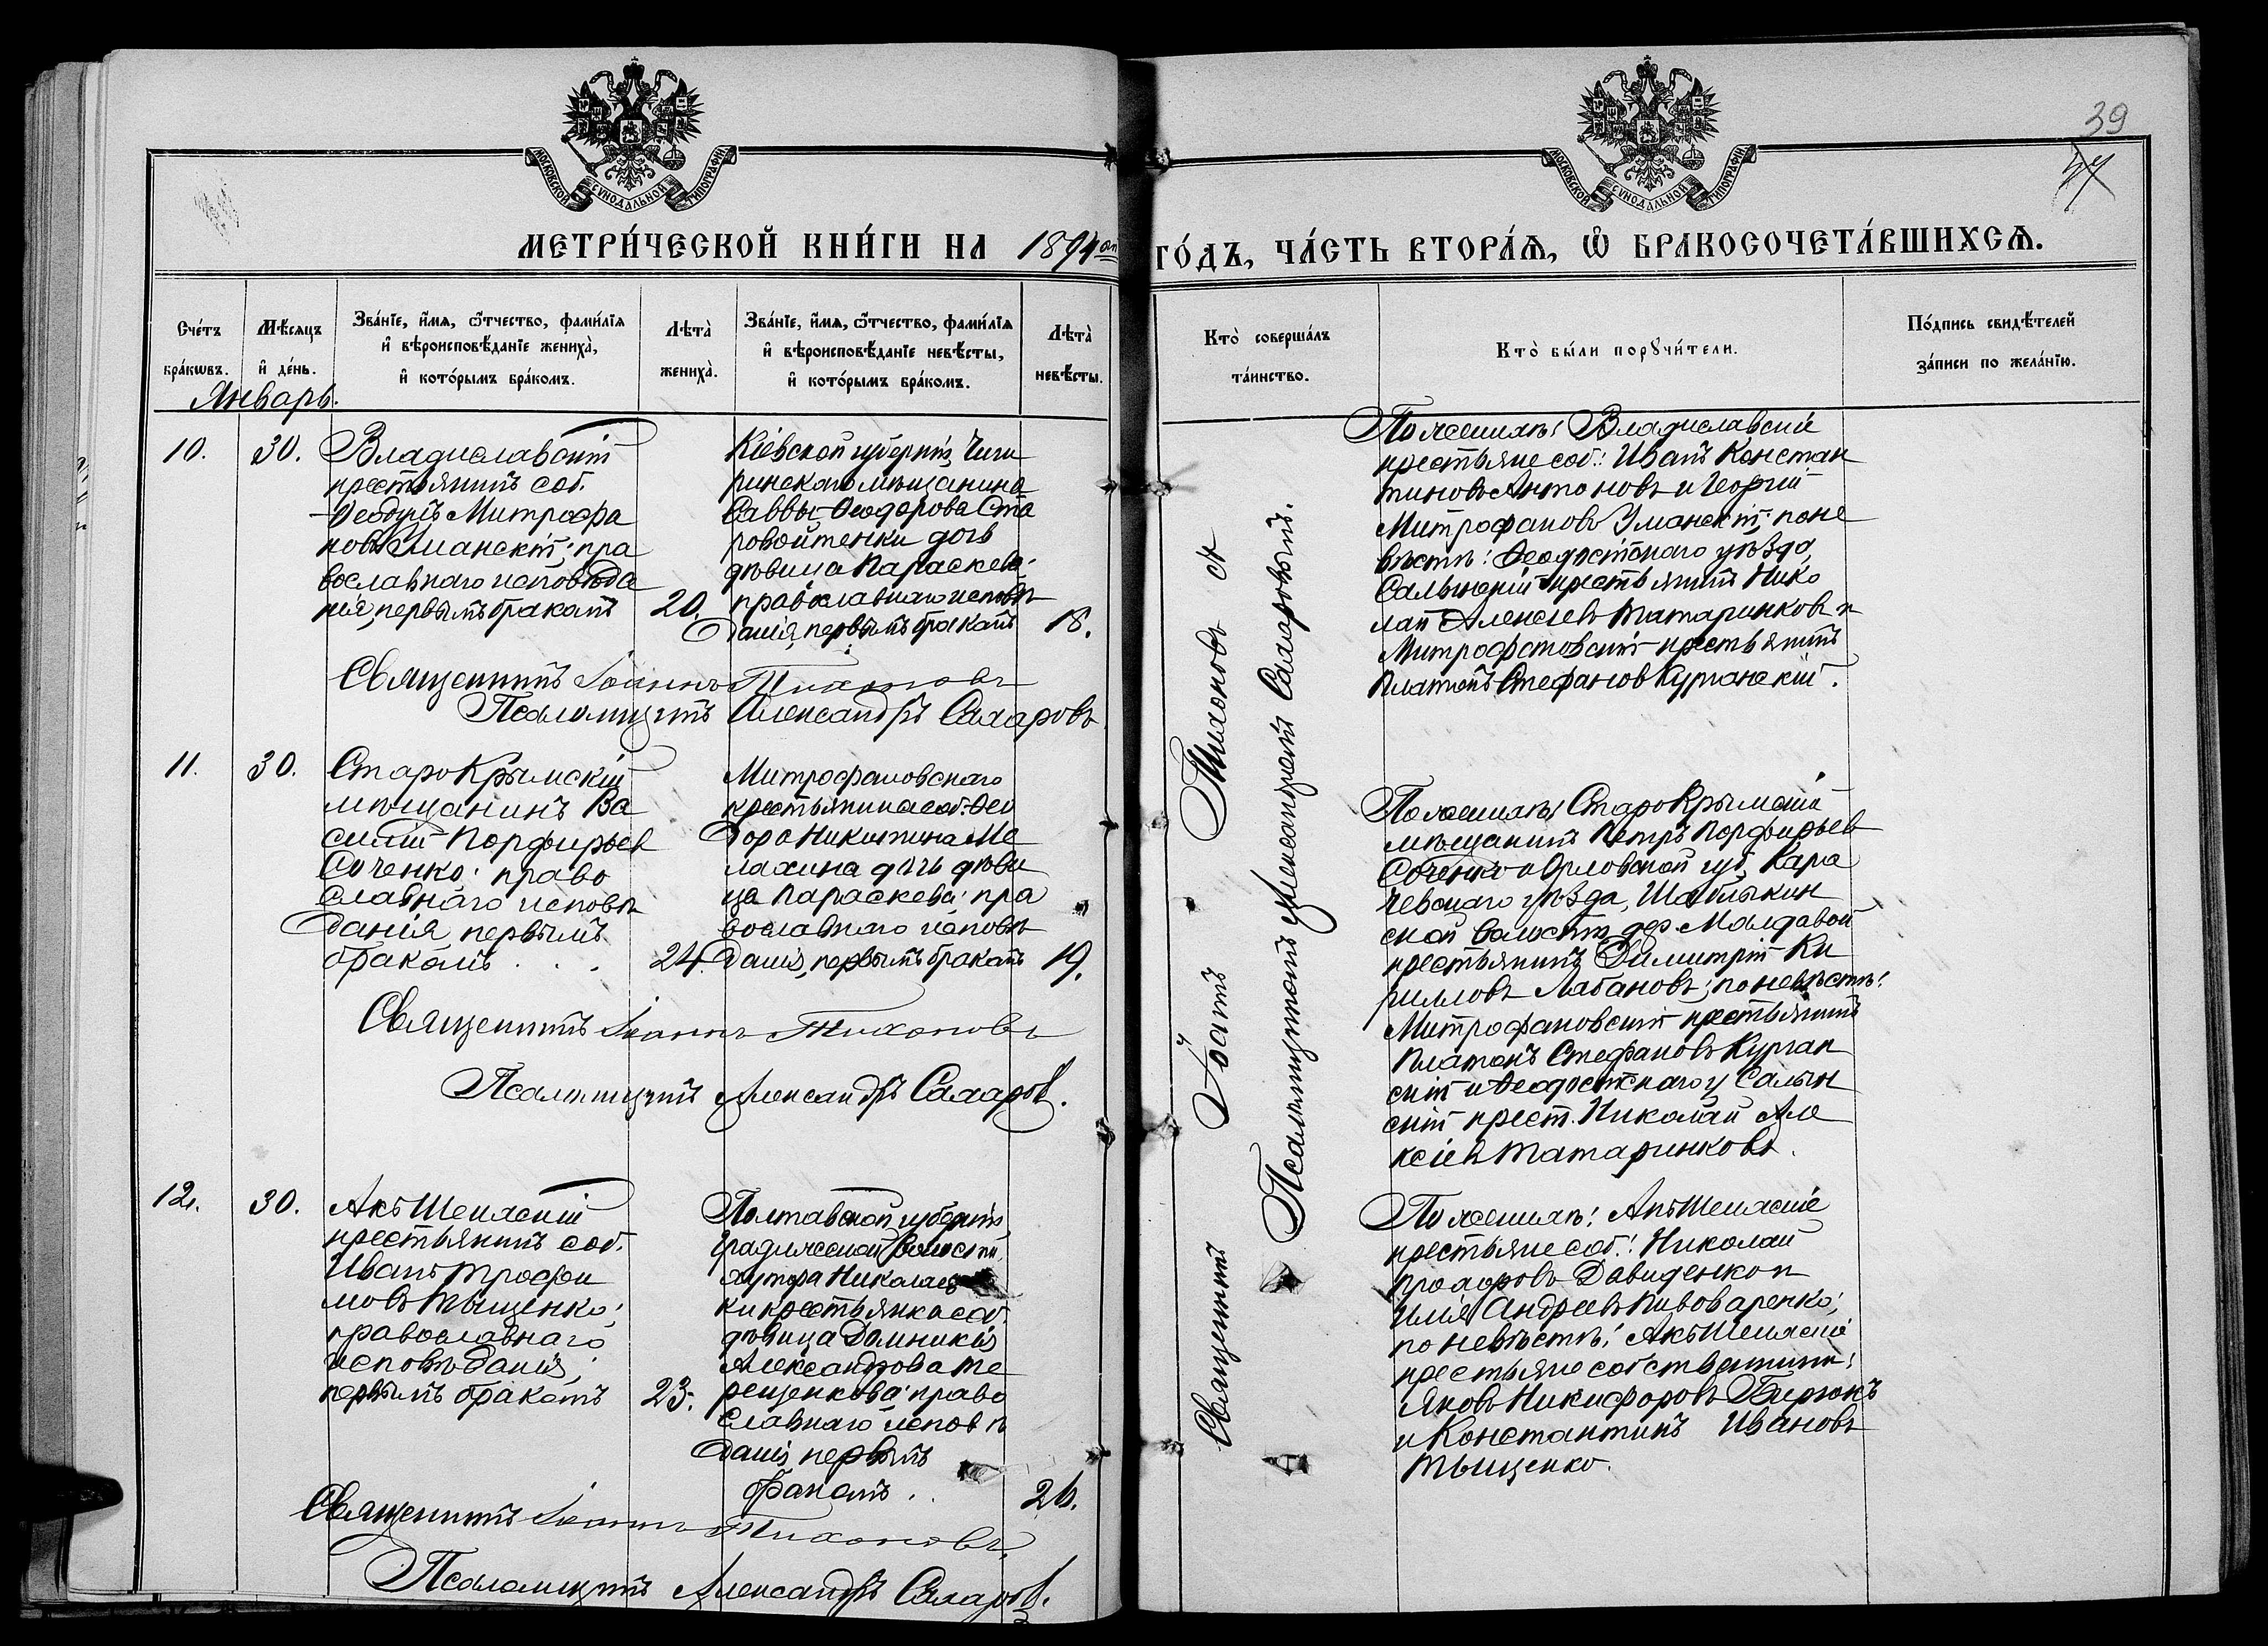 39
МОСКОВСКОЙ СѴНОДАЛЬНОЙ ТИПОГРАФІИ
МОСКОВСКОЙ СѴНОДАЛЬНОЙ ТИПОГРАФІИ
МЕТРИ́ЧЕСКОЙ КНИ́ГИ НА 1894 ГО́ДЪ, ЧА́СТЬ ВТОРА́Ѧ, Ѿ БРАКОСОЧЕТА́ВШИХСѦ.
Сче́тъ бра́кѡвъ.
Мѣ́сяцъ и҆ де́нь.
Зва́нїе, и҆́мѧ, ѻ҆́тчество, фами́лїѧ
и҆ вѣроисповѣ́данїе жениха̀,
и҆ кото́рымъ бра́комъ.
Лѣта̀ жениха̀.
Зва́нїе, и҆́мѧ, ѻ҆́тчество, фами́лїѧ
и҆ вѣроисповѣ́данїе невѣ́сты,
и҆ кото́рымъ бра́комъ.
Лѣта̀ невѣ́сты.
Кто̀ соверша́лъ
та́инство.
Кто̀ бы́ли порꙋчи́тели.
По́дпись свидѣ́телей
за́писи по жела́нїю.
Январь.
10.
30.
Владиславскій
крестьянинъ соб.
Ѳеодулъ Митрофа
новъ Уманскій; пра
вославнаго исповѣда
нія, первымъ бракомъ
20.
Кіевской губерніи, Чиги
ринскаго мѣщанина
Саввы Ѳеодорова Ста
ровойтенки дочь
дѣвица Параскева;
православнаго исповѣ
данія, первымъ бракомъ
18.
Священникъ Іоаннъ Тихоновъ
Псаломщикъ Александръ Сахаровъ
По женихѣ: Владиславскіе
крестьяне соб.: Иванъ Констан
тиновъ Антоновъ и Георгій
Митрофановъ Уманскій; по не
вѣстѣ: Ѳеодосійскаго уѣзда,
Салынскій крестьянинъ Нико
лай Алексіевъ Татаринковъ и
Митрофановскій крестьянинъ
Платонъ Стефановъ Курганскій.
11.
30.
СтароКрымскій
мѣщанинъ Ва
силій Порфирьев
Соченко; право
славнаго исповѣ
данія, первымъ
бракомъ
24.
Митрофановскаго
крестьянина соб. Ѳео
дора Никитина Ме
лахина дочь дѣви
ца Параскева; пра
вославнаго исповѣ
данія, первымъ бракомъ
19.
Священникъ Іоаннъ Тихоновъ
Псаломщикъ Александръ Сахаров.
По женихѣ: СтароКрымскій
мѣщанинъ Петръ Порфирьев
Соченко и Орловской губ. Кара
чевскаго уѣзда, Шаблыкин
ской волости дер. Молдавой
крестьянинъ Димитрій Ки
рилловъ Лабановъ; по невѣстѣ:
Митрофановскій крестьянинъ
Платонъ Стефановъ Курган
скій и Ѳеодосійскаго у Салын
скій крест. Николай Але
ксіев Татаринковъ.
12.
30.
АкъШеихскій
крестьянинъ соб.
Иванъ Трофи
мовъ Тыщенко;
православнаго
исповѣданія,
первымъ бракомъ
23.
Полтавской губерніи
Градижской волости
хутора Николаев
ки крестьянка соб.
дѣвица Домникія
Александрова Те
рещенкова; право
славнаго исповѣ
данія, первымъ
бракомъ
26.
Священникъ Іоаннъ Тихоновъ.
Псаломщикъ Александръ Сахаров.
По женихѣ: АкъШеихскіе
крестьяне соб.: Николай
Прохоровъ Давиденко и
Илія Андреевъ Пивоваренко;
по невѣстѣ: АкъШеихскіе
крестьяне собственники:
Яковъ Никифоровъ Бирюкъ
и Константинъ Ивановъ
Тыщенко.
Священникъ Іоаннъ Тихоновъ съ
Псаломщикомъ Александромъ Сахаровымъ.